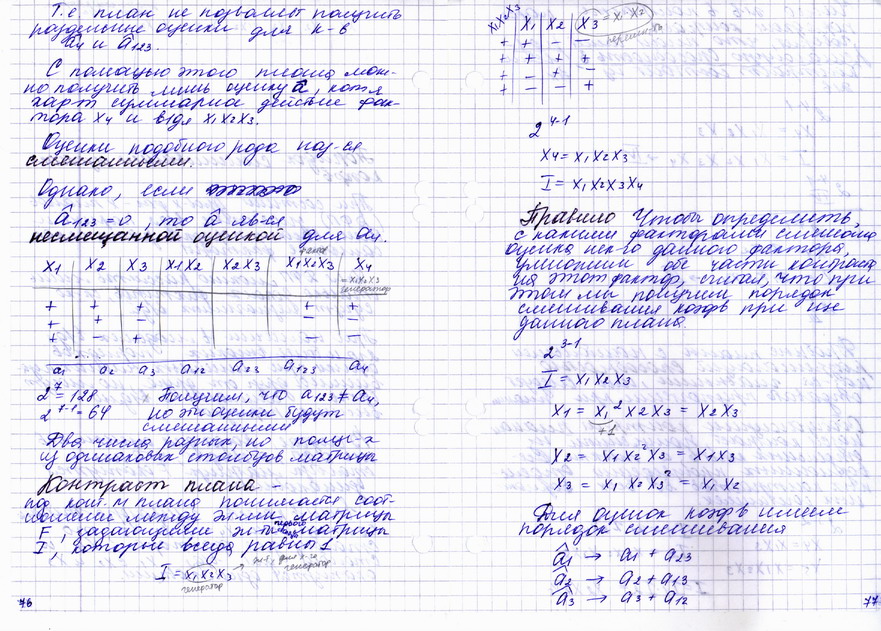 Т.е план не позволяет получить
раздельные оценки для к-в
a₄ и a₁₂₃.
С помощью этого плана мож-
но получить лишь оценку â, хотя
харт суммарное действие фак-
тора x₄ и вз-я x₁x₂x₃.
Оценки подобного рода наз-ся
смешанными.
Однако, если
â₁₂₃ = 0, то â явл-ся
несмещанной оценкой для a₄.
x₁ x₂ x₃ x₁x₂ x₂x₃ x₁x₂x₃ x₄
= x₁x₂x₃
генератор
+ + + + +
+ + − − −
+ − + − −
a₁ a₂ a₃ a₁₂ a₂₃ a₁₂₃ a₄
2⁷ = 128 Получим, что a₁₂₃ ≠ a₄,
2⁷⁻¹ = 64 но эти оценки будут
смешанными
Два числа разных, но
из одинаковых столбцов матрицы
Контраст плана –
под конт-м плана понимается соот-
ношение между эл-ми матрицы
F, задающими эл-ты первого матрицы
I, которые всегда равны 1
I = x₁x₂x₃
генератор
генератор
76
x₁x₂x₃ x₁ x₂ x₃ = x₁x₂
+ + − −
+ + + +
− − + −
+ − − +
2⁴⁻¹
x₄ = x₁x₂x₃
I = x₁x₂x₃x₄
Правило Чтобы определить,
с какими факторами смешана
оценка нек-го данного фактора,
умножим обе части контраста
на этот фактор, считая, что при
этом мы получим порядок
смешивания коэф при исп
данного плана.
2³⁻¹
I = x₁x₂x₃
x₁ = x₁²x₂x₃ = x₂x₃
+1
x₂ = x₁x₂²x₃ = x₁x₃
x₃ = x₁x₂x₃² = x₁x₂
Для оценок коэф имеем
порядок смешивания
â₁ → a₁ + a₂₃
â₂ → a₂ + a₁₃
â₃ → a₃ + a₁₂
77